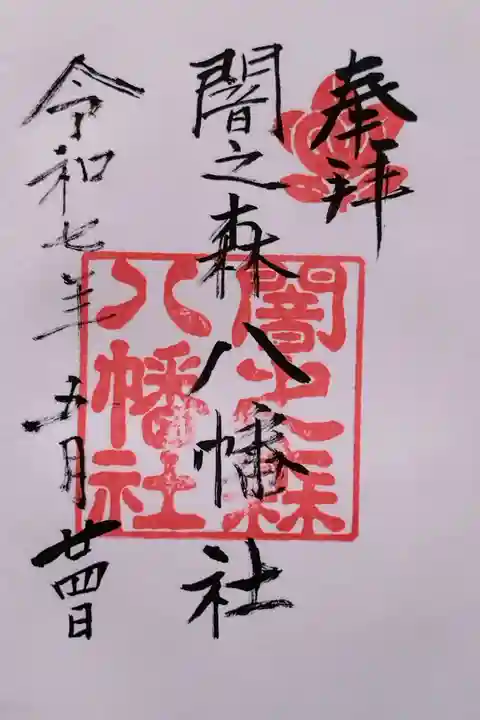 奉拝
闇之森八幡社
闇之森
八幡社
令和七年五月廿四日